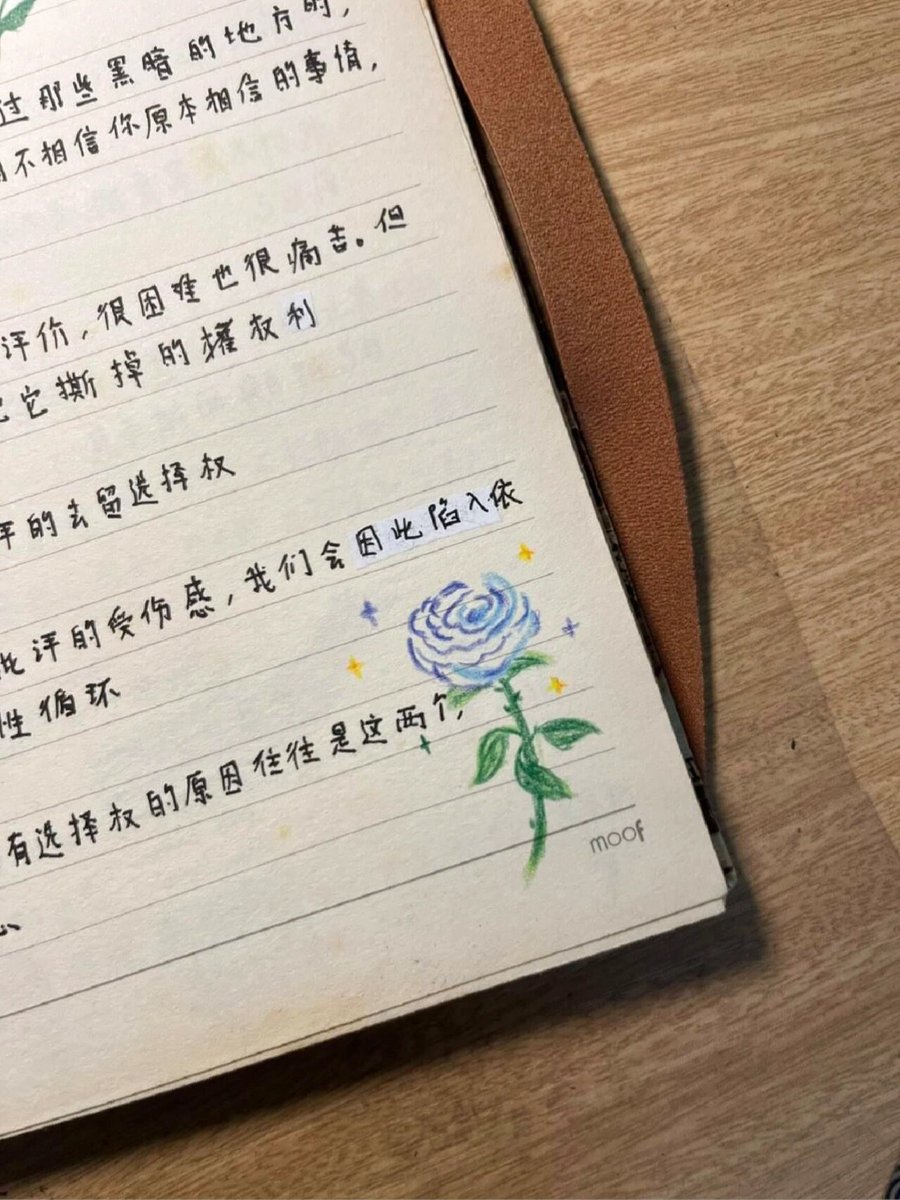 过那些黑暗的地方的,
不相信你原本相信的事情,
评价,很困难也很痛苦。但
它撕掉的權权利
评的去留选择权
批评的受伤感,我们会因此陷入依
性循环
有选择权的原因往往是这两个,
moof